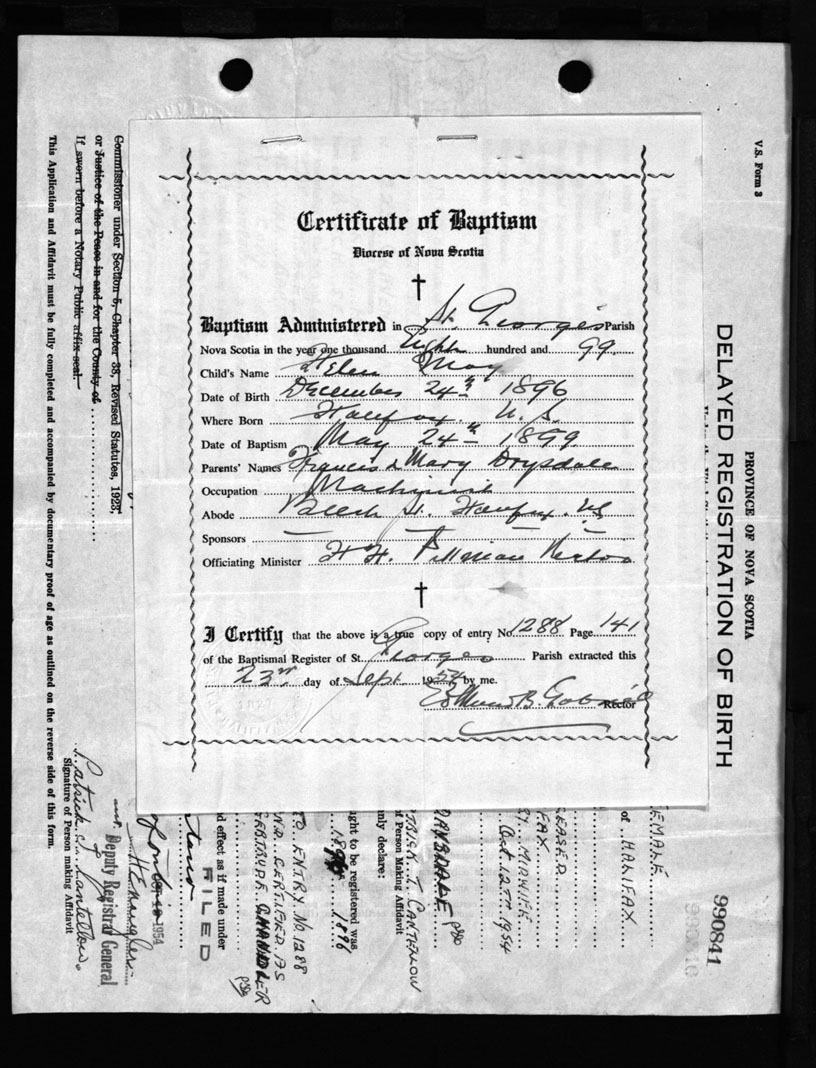 Certificate of Baptism
Diocese of Nova Scotia
Baptism Administered in St. Georges Parish
Nova Scotia in the year one thousand Eight hundred and 99.
Child's Name Helen May
Date of Birth December 24th 1896
Where Born Halifax. N.S.
Date of Baptism May 24th 1899
Parents' Names Francis & Mary Drysdale
Occupation Machinist
Abode Beech St. Halifax. NS
Sponsors
Officiating Minister H. H. Rector
I Certify that the above is a true copy of entry No. 1288 Page 141
of the Baptismal Register of St. Georges Parish extracted this
23rd day of Sept. 1954 by me.
B. Rector
V.S. Form 3
PROVINCE OF NOVA SCOTIA
DELAYED REGISTRATION OF BIRTH
990841
EMALE
of HALIFAX
EASED
FAX
BY MIDWIFE
Oct. 12TH 1954
DRYSDALE
of Person Making Affidavit
TRICK T. CANTELLOW
nly declare:
ught to be registered was
1896
ENTRY No. 1288
CERTIFIED AS
GERTRUDE CHANDLER
d effect as if made under
FILED
1954
Deputy Registrar General
Patrick Cantellow.
Signature of Person making Affidavit
Commissioner under Section 5, Chapter 38, Revised Statutes, 1923,
or Justice of the Peace in and for the County of
If sworn before a Notary Public affix seal.
This Application and Affidavit must be fully completed and accompanied by documentary proof of age as outlined on the reverse side of this form.